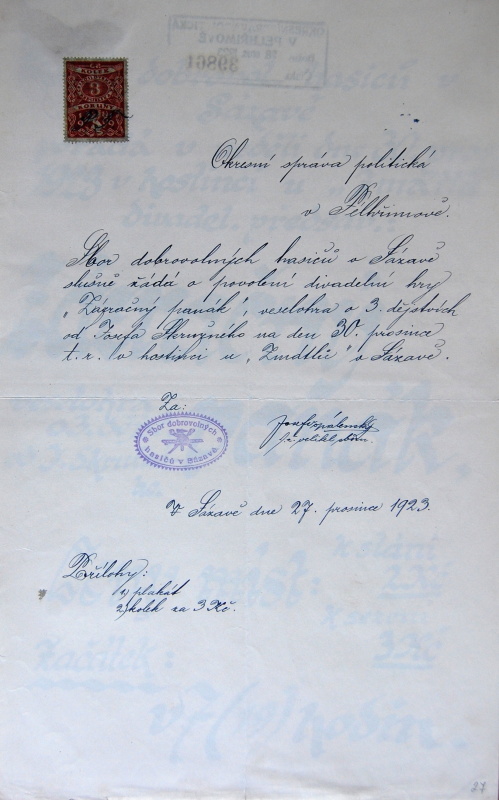 KOLEK
3
KORUNY
Okresní správa politická
v Pelhřimově.
Sbor dobrovolných hasičů v Sázavě
slušně žádá o povolení divadelní hry
„Zázračný panák", veselohra o 3. dějstvích
od Josefa Skružného na den 30. prosince
t. r. v hostinci u „Zmátlů" v Sázavě.
Za:
Sbor dobrovolných
hasičů v Sázavě.
Josef
t. č. velitel sboru.
V Sázavě dne 27. prosince 1923.
Přílohy:
1) plakát
2) kolek za 3 Kč.
V PELHŘIMOVĚ
39861
k stání
K sezení
3 Kč
Začátek:
v 7 (19) hodin.
27